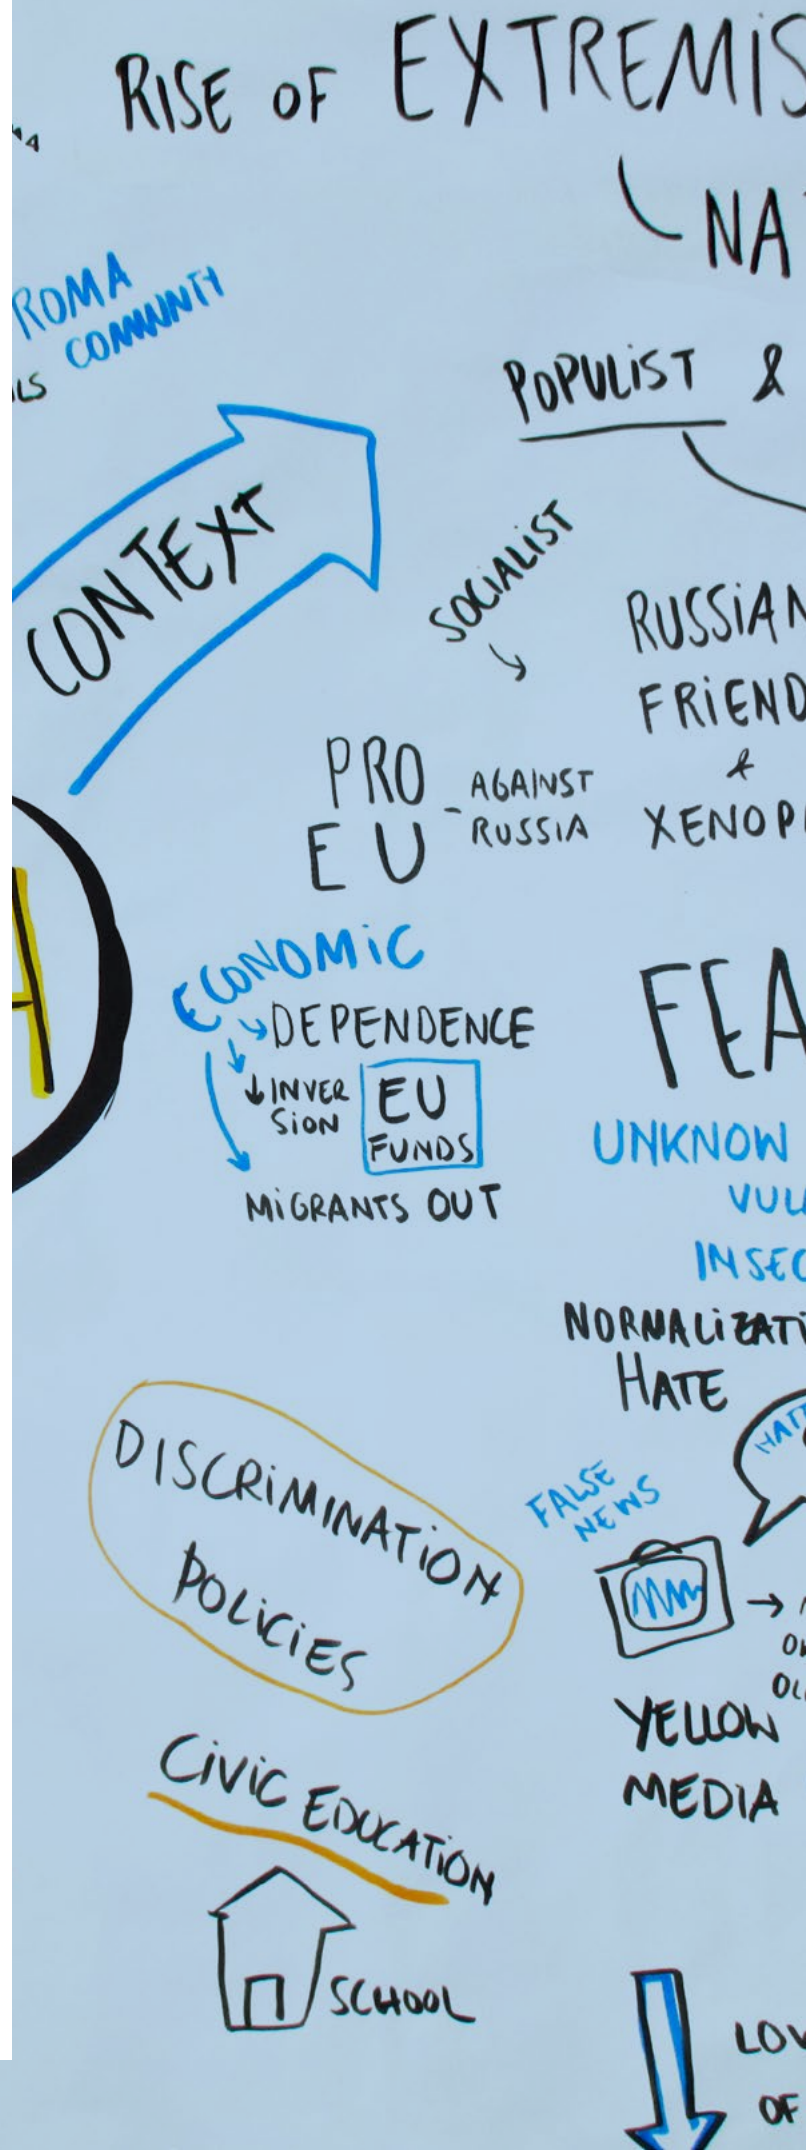 RISE OF EXTREMIS
NA
ROMA
COMMNNTY
LS
POPULIST &
CONTEXT
SOCIALIST
RUSSIAN
FRIEND
&
XENOP
PRO
EU
- AGAINST
RUSSIA
ECONOMIC
DEPENDENCE
↓ INVER
SION
EU
FUNDS
MIGRANTS OUT
FEA
UNKNOW
VUL
INSEC
NORMALIZATI
HATE
HAT
DISCRIMINATION
POLICIES
FALSE
NEWS
YELLOW
MEDIA
CIVIC EDUCATION
SCHOOL
LOW
OF